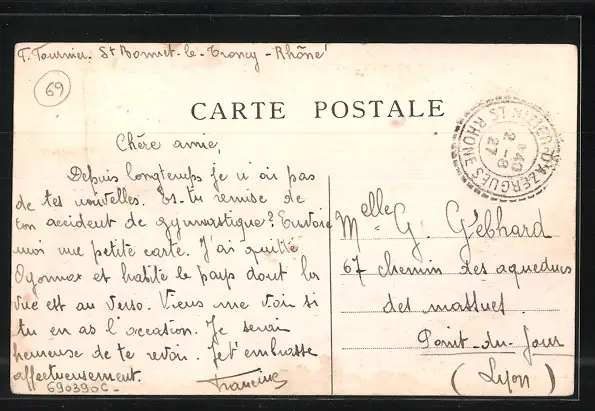 F. Tournier. St Bonnet-le-Troncy - Rhône
69
CARTE POSTALE
ST NIZIER-D'AZERGUES RHONE
2-8
27
Chère amie,
Depuis longtemps je n'ai pas
de tes nouvelles. Es-tu remise de
ton accident de gymnastique? Envoie
moi une petite carte. J'ai quitté
Oyonnax et habite le pays dont la
vue est au verso. Viens me voir si
tu en as l'occasion. Je serai
heureuse de te revoir. Je t'embrasse
affectueusement.
Francine
690390C-
Melle G. Gébhard
67 chemin des aqueducs
des massues.
Point-du-Jour
(Lyon)